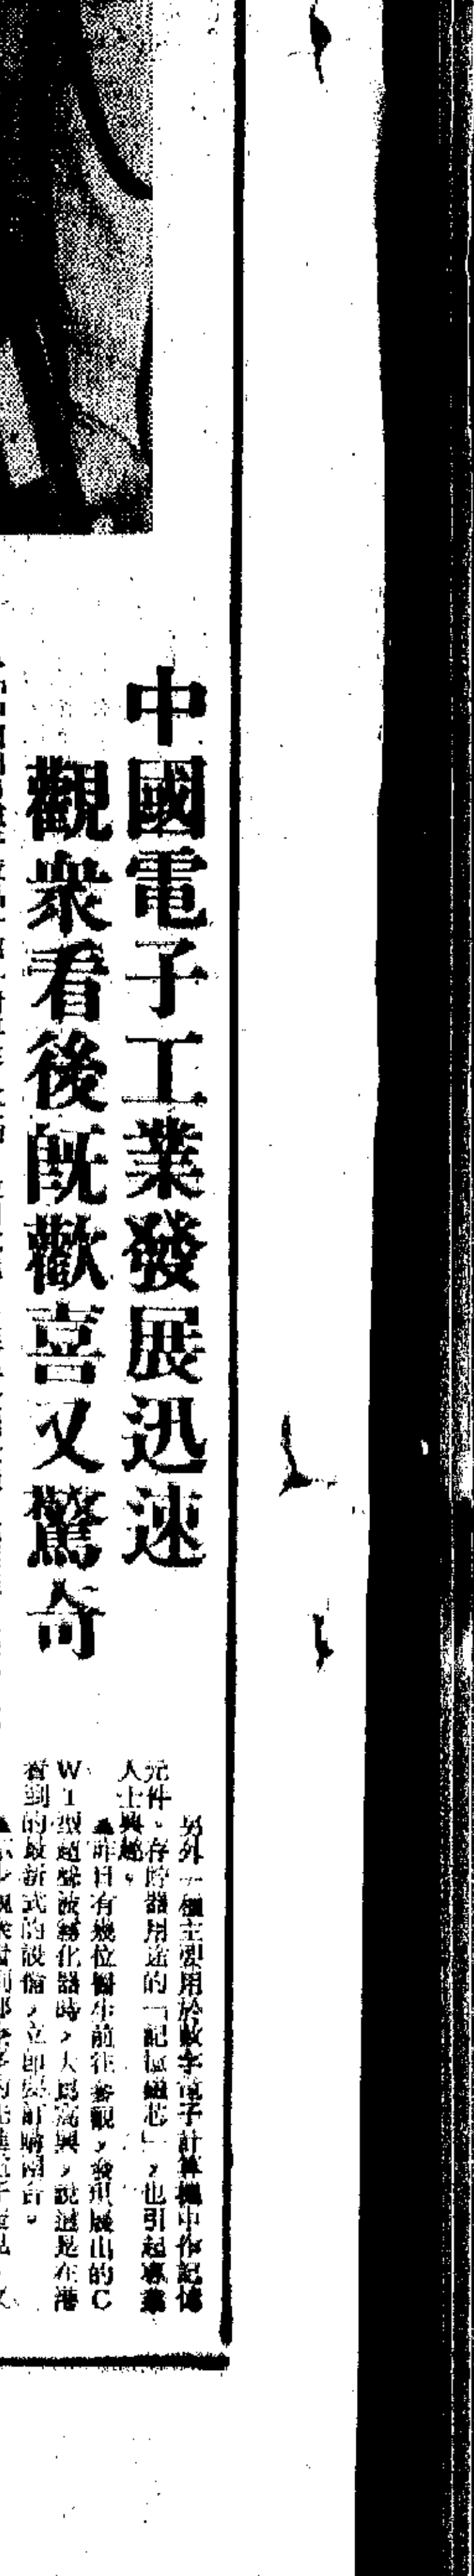 中國電子工業發展迅速
觀衆看後既歡喜又驚奇
另外一種主要用於數字電子計算機中作記憶
元件、存貯器用途的「記憶磁芯」，也引起專業
人士興趣。
▲昨日有幾位醫生前往參觀，發現展出的C
W1型超聲波霧化器時，大爲高興，說這是在港
看到的最新式的設備，立即要訂購兩台。